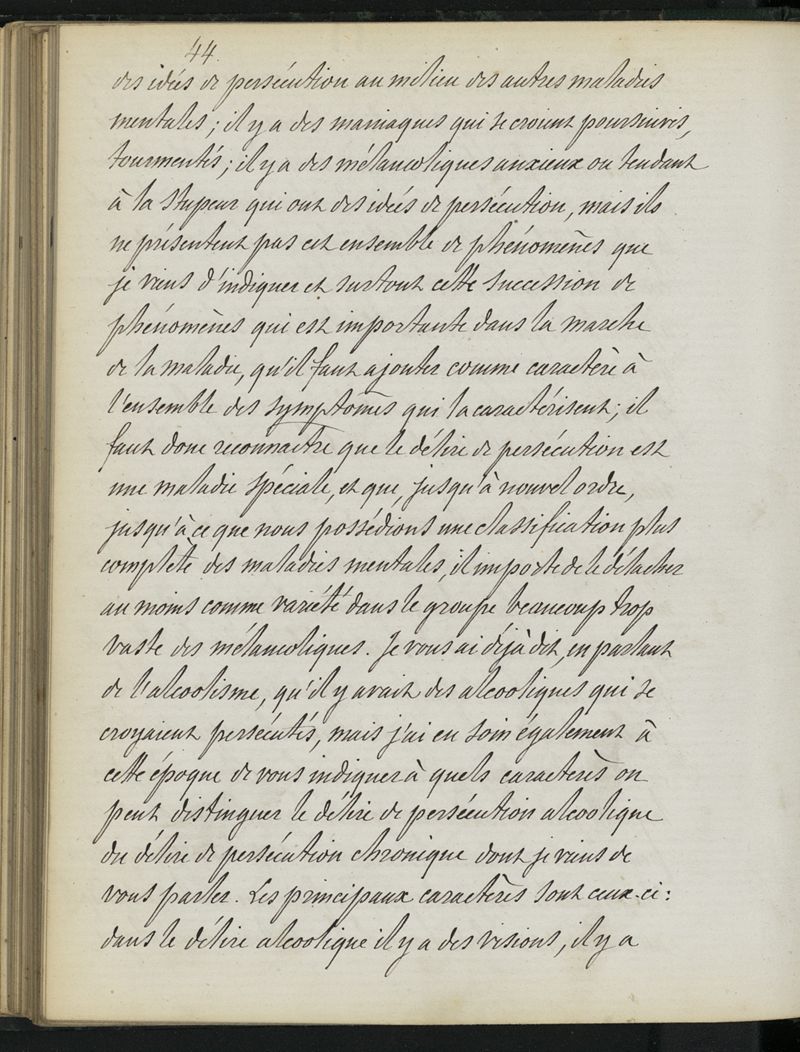 44.
des idées de persécution au milieu des autres maladies
mentales ; il y a des maniaques qui se croient poursuivis,
tourmentés ; il y a des mélancoliques anxieux ou tendant
à la stupeur qui ont des idées de persécution, mais ils
ne présentent pas cet ensemble de phénomènes que
je viens d'indiquer et surtout cette succession de
phénomènes qui est importante dans la marche
de la maladie, qu'il faut ajouter comme caractère à
l'ensemble des symptômes qui la caractérisent ; il
faut donc reconnaître que le délire de persécution est
une maladie spéciale, et que, jusqu'à nouvel ordre,
jusqu'à ce que nous possédions une classification plus
complète des maladies mentales, il importe de le détacher
au moins comme variété dans le groupe beaucoup trop
vaste des mélancoliques. Je vous ai déjà dit, en parlant
de l'alcoolisme, qu'il y avait des alcooliques qui se
croyaient persécutés, mais j'ai eu soin également à
cette époque de vous indiquer à quels caractères on
peut distinguer le délire de persécution alcoolique
du délire de persécution chronique dont je viens de
vous parler. Les principaux caractères sont ceux-ci :
dans le délire alcoolique il y a des visions, il y a